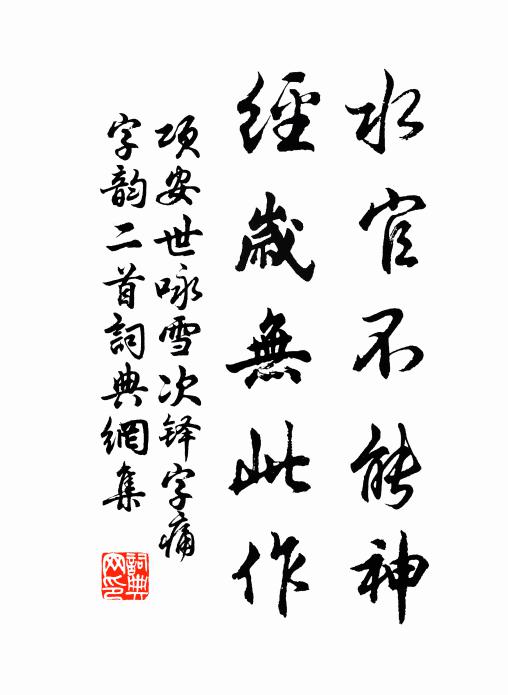 水官不能神
經歲無此作
项安世咏雪次铎字痛
字韵二首詞典網集
詞典
网印